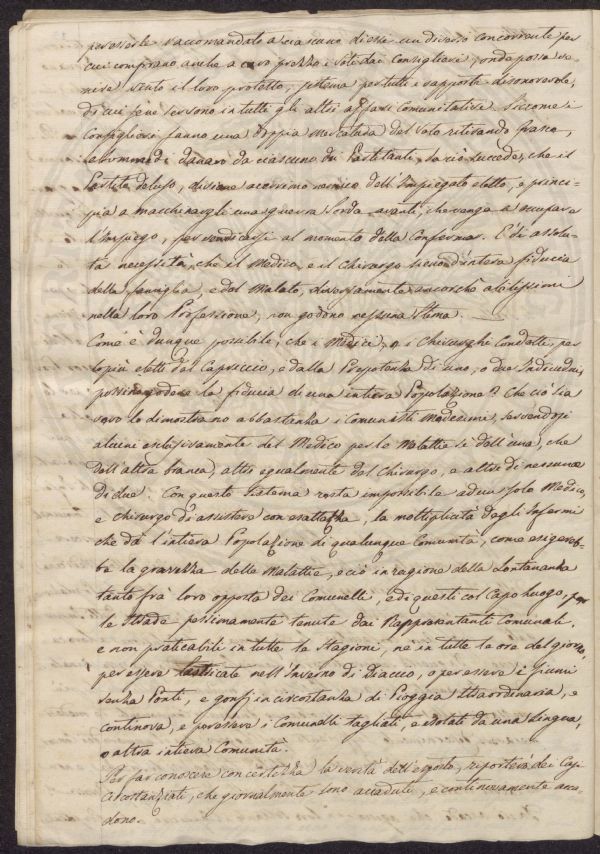 per esserle raccomandato a ciascuno di esse un diverso concorrente per
cui comprano anche a caro prezzo i voti dai Consiglieri, onde possa ve-
nire vinto il loro protetto, sistema per tutti i rapporti disonorevole,
di cui se ne servono in tutti gli altri affari Comunitativi. Siccome i
Consiglieri fanno una doppia mercatura del voto ritirando
danaro da ciascuno dei Partitanti, da ciò succede, che il
Partito deluso, diviene acerrimo nemico dell'Impiegato eletto, e princi-
pia a macchinargli una guerra sorda avanti, che venga a occupare
l'Impiego, per vendicarsi al momento della Conferma. È di assolu-
ta necessità, che il Medico, e il Chirurgo  intera fiducia
della famiglia, e dal Malato, diversamente ancorchè abilissimi
nella loro Professione, non godono nessuna stima.
Com'è dunque possibile, che i Medici, o i Chirurghi Condotti, per
lo più eletti dal Capriccio, e dalla Prepotenza di uno, o due Individui,
possino godere la fiducia di una intiera Popolazione? Che ciò sia
vero lo dimostrano abbastanza i Comunelli medesimi, servendosi
alcuni esclusivamente del Medico per le Malattie sì dell'una, che
dell'altra branca, altri egualmente del Chirurgo, e altri di nessuno
di due. Con questo sistema resta impossibile ad un solo Medico,
e Chirurgo di assistere con esattezza, la moltiplicità degli Infermi
che dà l'intiera Popolazione di qualunque Comunità, come esigereb-
be la gravezza delle Malattie, e ciò in ragione della Lontananza
tanto fra loro opposta dei Comunelli, e di questi col Capo luogo, per
le Strade pessimamente tenute dai Rappresentanti Comunali,
e non praticabili in tutte le Stagioni, nè in tutte le ore del giorno,
per essere lastricate nell'Inverno di Diaccio, o per essere i fiumi
senza Ponti, e gonfi in circostanza di Pioggia straordinaria, e
continova, e per essere i Comunelli tagliati, e isolati da una Lingua,
o altra intiera Comunità.
Per far conoscere con certezza la verità dell'esposto, riporterò dei Capi
Circostanziati, che giornalmente sono accaduti, e continovamente acca-
dono.